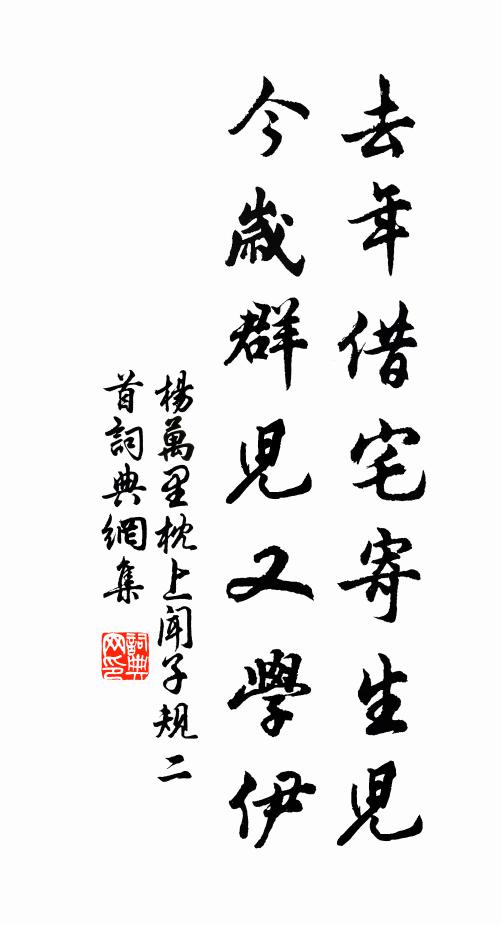 去年借宅寄生児
今歲群児又學伊
楊萬里枕上聞子規二
首詞典網集
詞典網印